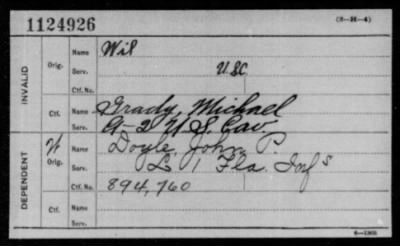 1124926
(3-M-4)
INVALID
Orig.
Name Wil
Serv. U.S.C.
Ctf. No.
Ctf.
Name Grady, Michael
Serv. G-2 U S. Cav.
DEPENDENT
W
Orig.
Name Doyle, John P.
Serv. L 1 Fla. Inf s
Ctf. No. 894,760
Ctf.
Name
Serv.
6—1303